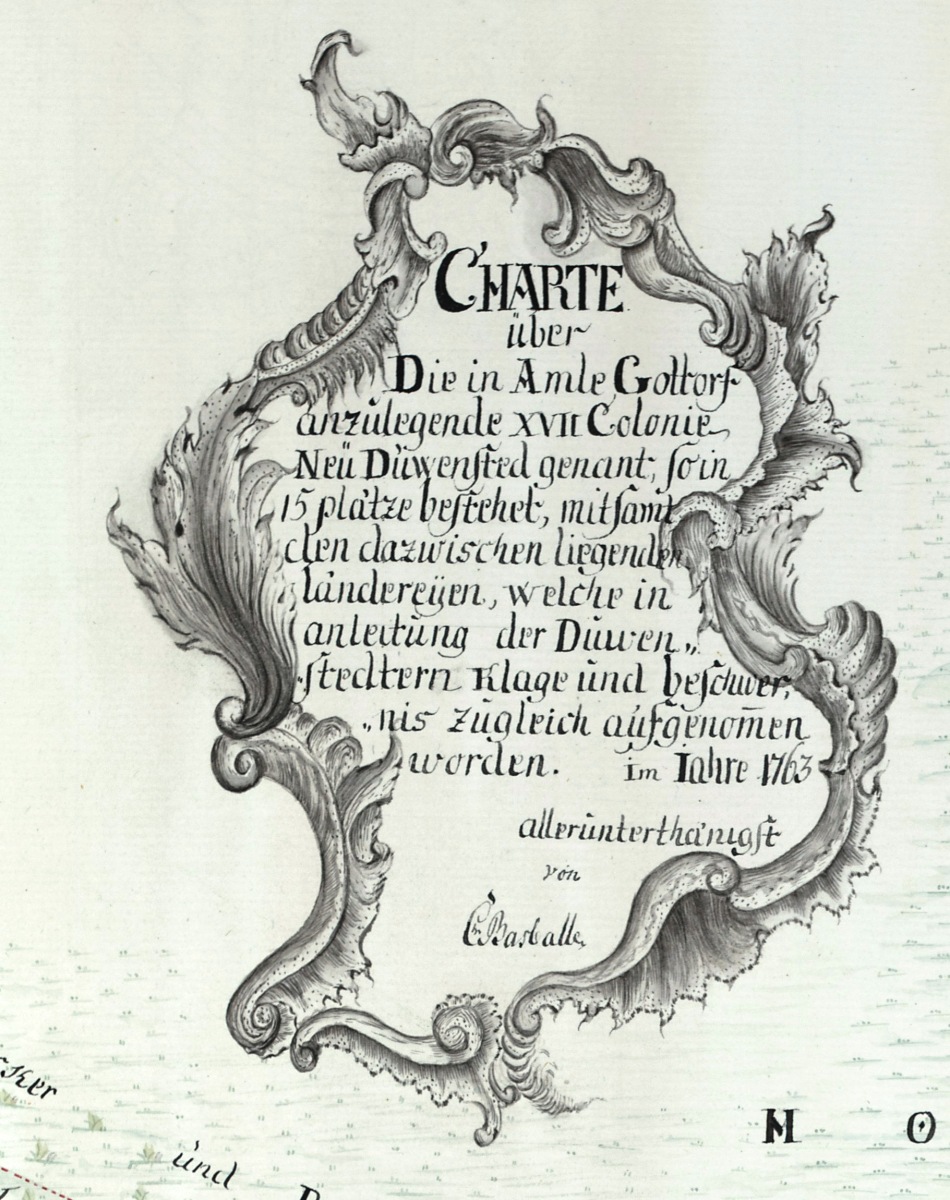 CHARTE
über
Die in Amte Gottorf
anzulegende XVII Colonie
Neü Düwensted genant, so in
15 plätze bestehet, mitsamt
den dazwischen liegenden
ländereÿen, welche in
anleitung der Düwen„
stedtern Klage und beschwer„
„nis zugleich aufgenom̄en
worden. im Iahre 1763
allerunterthänigst
von
und
M O